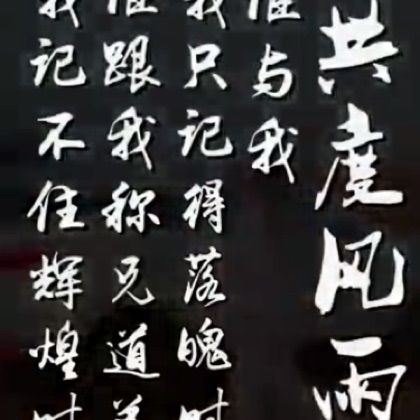 我记不住辉煌时
谁跟我称兄道
我只记得落魄时
谁与我
共度风雨